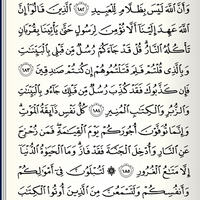 وَأَنَّ ٱللَّهَ لَيْسَ بِظَلَّامٍ لِّلْعَبِيدِ ١٨٢ ٱلَّذِينَ قَالُوٓا۟ إِنَّ
ٱللَّهَ عَهِدَ إِلَيْنَآ أَلَّا نُؤْمِنَ لِرَسُولٍ حَتَّىٰ يَأْتِيَنَا بِقُرْبَانٍ
تَأْكُلُهُ ٱلنَّارُ ۗ قُلْ قَدْ جَآءَكُمْ رُسُلٌ مِّن قَبْلِى بِٱلْبَيِّنَٰتِ
وَبِٱلَّذِى قُلْتُمْ فَلِمَ قَتَلْتُمُوهُمْ إِن كُنتُمْ صَٰدِقِينَ ١٨٣
فَإِن كَذَّبُوكَ فَقَدْ كُذِّبَ رُسُلٌ مِّن قَبْلِكَ جَآءُو بِٱلْبَيِّنَٰتِ
وَٱلزُّبُرِ وَٱلْكِتَٰبِ ٱلْمُنِيرِ ١٨٤ كُلُّ نَفْسٍ ذَآئِقَةُ ٱلْمَوْتِ ۗ
وَإِنَّمَا تُوَفَّوْنَ أُجُورَكُمْ يَوْمَ ٱلْقِيَٰمَةِ ۖ فَمَن زُحْزِحَ
عَنِ ٱلنَّارِ وَأُدْخِلَ ٱلْجَنَّةَ فَقَدْ فَازَ ۗ وَمَا ٱلْحَيَوٰةُ ٱلدُّنْيَآ
إِلَّا مَتَٰعُ ٱلْغُرُورِ ١٨٥ ۞ لَتُبْلَوُنَّ فِىٓ أَمْوَٰلِكُمْ
وَأَنفُسِكُمْ وَلَتَسْمَعُنَّ مِنَ ٱلَّذِينَ أُوتُوا۟ ٱلْكِتَٰبَ